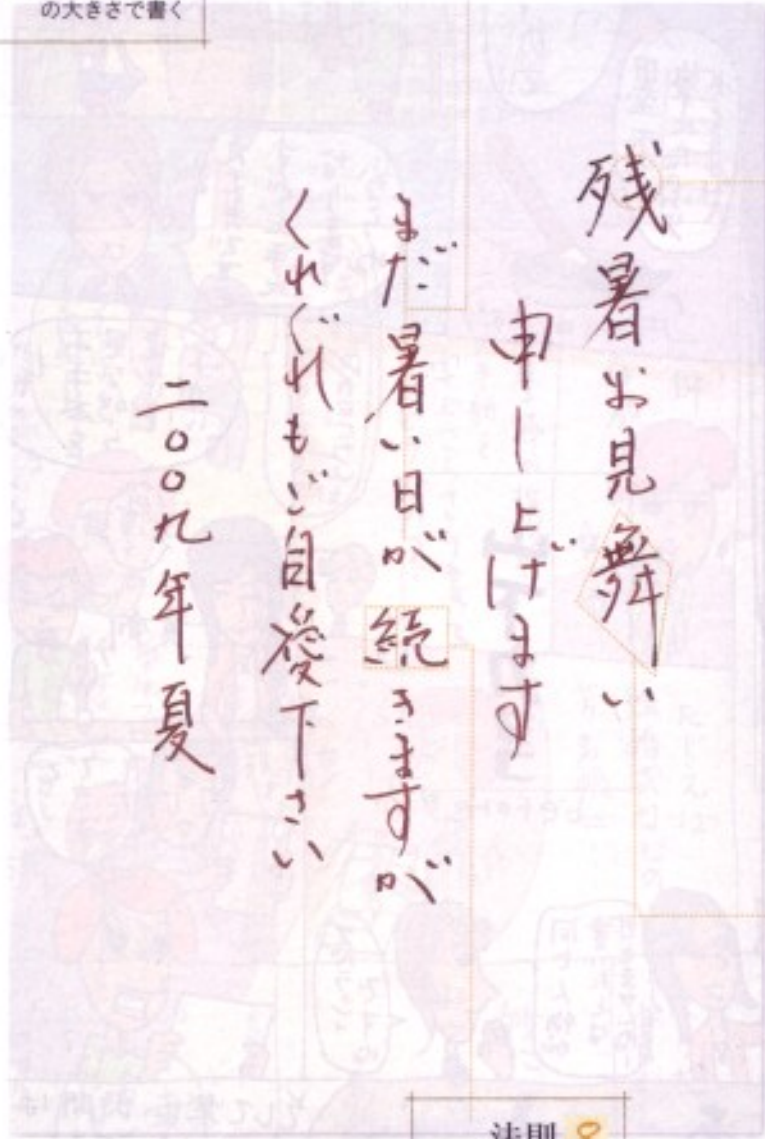 の大きさで書く
残暑お見舞い
申し上げます
まだ暑い日が続きますが
くれぐれもご自愛下さい
二〇〇九年夏
法則 9